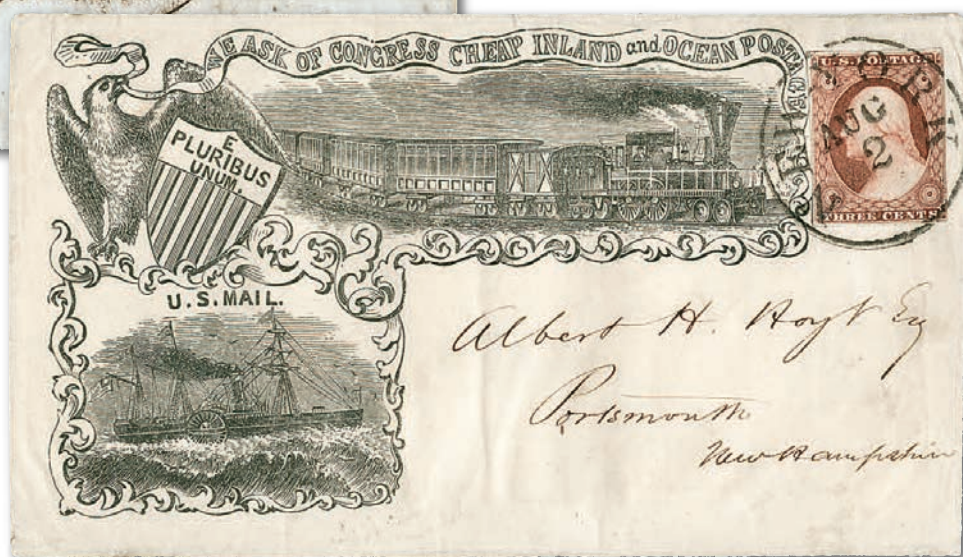 WE ASK OF CONGRESS CHEAP INLAND and OCEAN POSTAGE
E
PLURIBUS
UNUM.
U.S. MAIL.
U.S. POSTAGE
THREE CENTS.
YORK
AUG
2
Albert H. Hoyt Esq
Portsmouth
New Hampshire